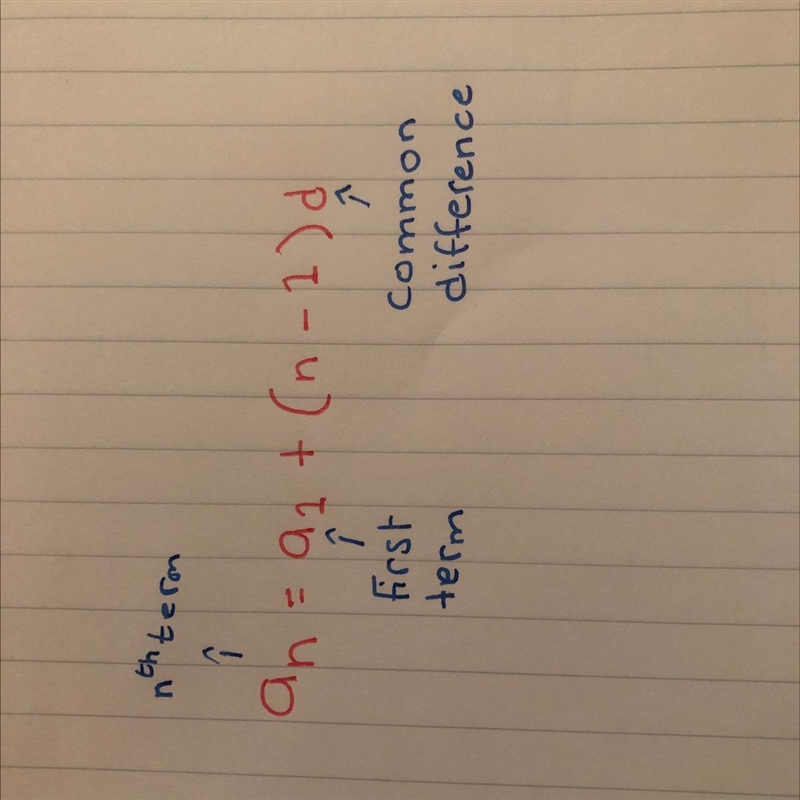 nth term
an = a1 + (n - 1)d
first
term
common
difference